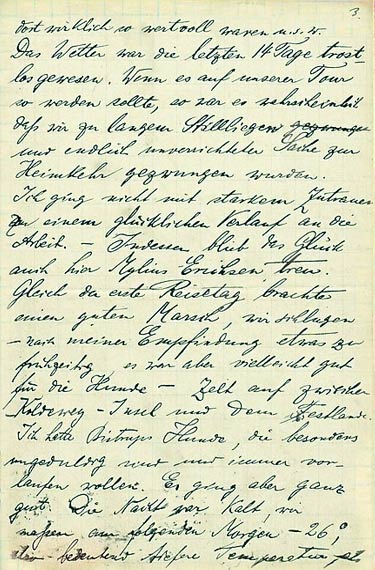 3.
dort wirklich so wertvoll waren u.s.w.
Das Wetter war die letzten 14 Tage trost
los gewesen. Wenn es auf unserer Tour
so werden sollte, so war es wahrscheinlich
daß wir zu langem Stillliegen gezwungen
und endlich unverrichteter Sache zur
Heimkehr gezwungen wurden.
Ich ging nicht mit starkem Zutrauen
zu einem glücklichen Verlauf an die
Arbeit. — Indessen blieb das Glück
auch hier Mylius Erichsen treu.
Gleich der erste Reisetag brachte
einen guten Marsch, wir schlugen
– nach meiner Empfindung etwas zu
frühzeitig, es war aber vielleicht gut
für die Hunde – Zelt auf zwischen
Koldewey-Insel und dem Festlande.
Ich hatte Bistrups Hunde, die besonders
ungeduldig sind und immer vor-
laufen wollen. Es ging aber ganz
gut. Die Nacht war kalt, wir
maßen am folgenden Morgen –26°,
bedeutend tiefere Temperatur als